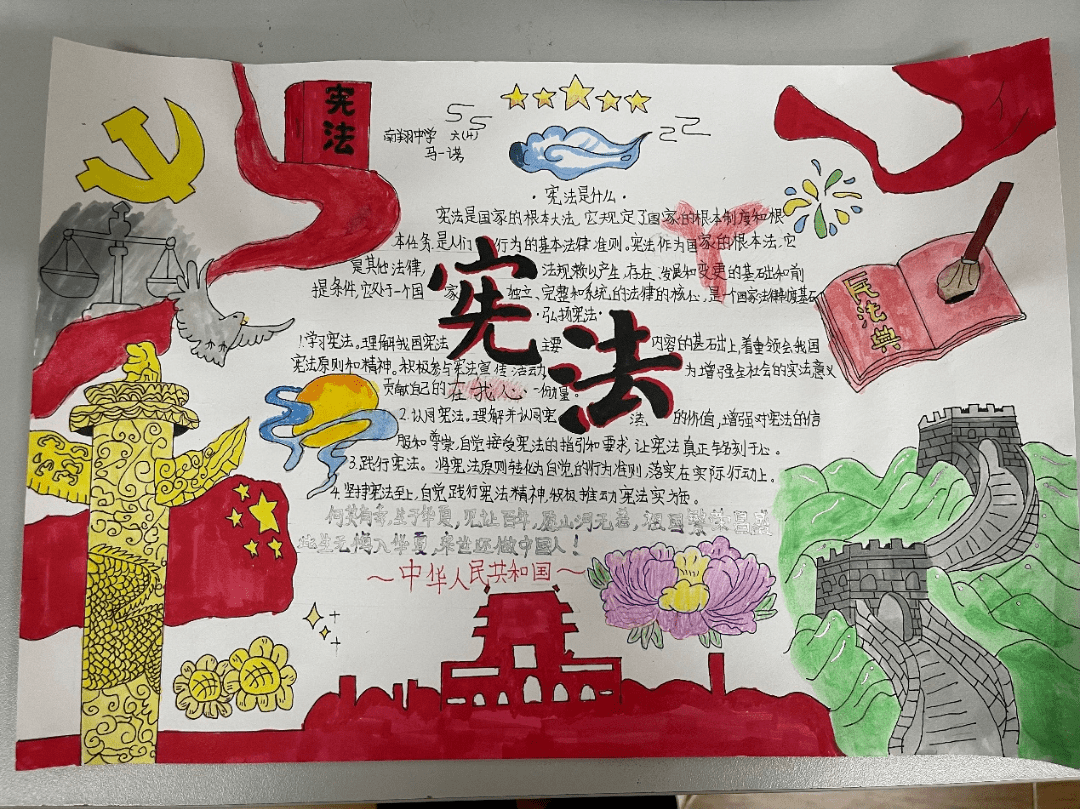 宪法
南翔中学 六(4)
马一诺
·宪法是什么·
宪法是国家的根本大法,它规定了国家的根本制度和根
本任务,是人们行为的基本法律准则。宪法作为国家的根本法,它
是其他法律,法规赖以产生、存在、发展和变更的基础和前
提条件,它处于一个国家独立、完整和系统的法律的核心,是一个国家法律制度基石
宪法
·弘扬宪法·
1.学习宪法。理解我国宪法主要内容的基础上,着重领会我国
宪法原则和精神。积极参与宪法宣传活动为增强全社会的宪法意义
贡献自己的一份力量。
在我心
2.认同宪法。理解并认同宪法的价值,增强对宪法的信
服和尊崇,自觉接受宪法的指引和要求,让宪法真正铭刻于心。
3.践行宪法。将宪法原则转化为自觉的行为准则,落实在实际行动上。
4.坚持宪法至上,自觉践行宪法精神,积极推动宪法实施。
何其有幸,生于华夏,见证百年,愿山河无恙,祖国繁荣昌盛
此生无悔入华夏,来世还做中国人!
～中华人民共和国～
民法典